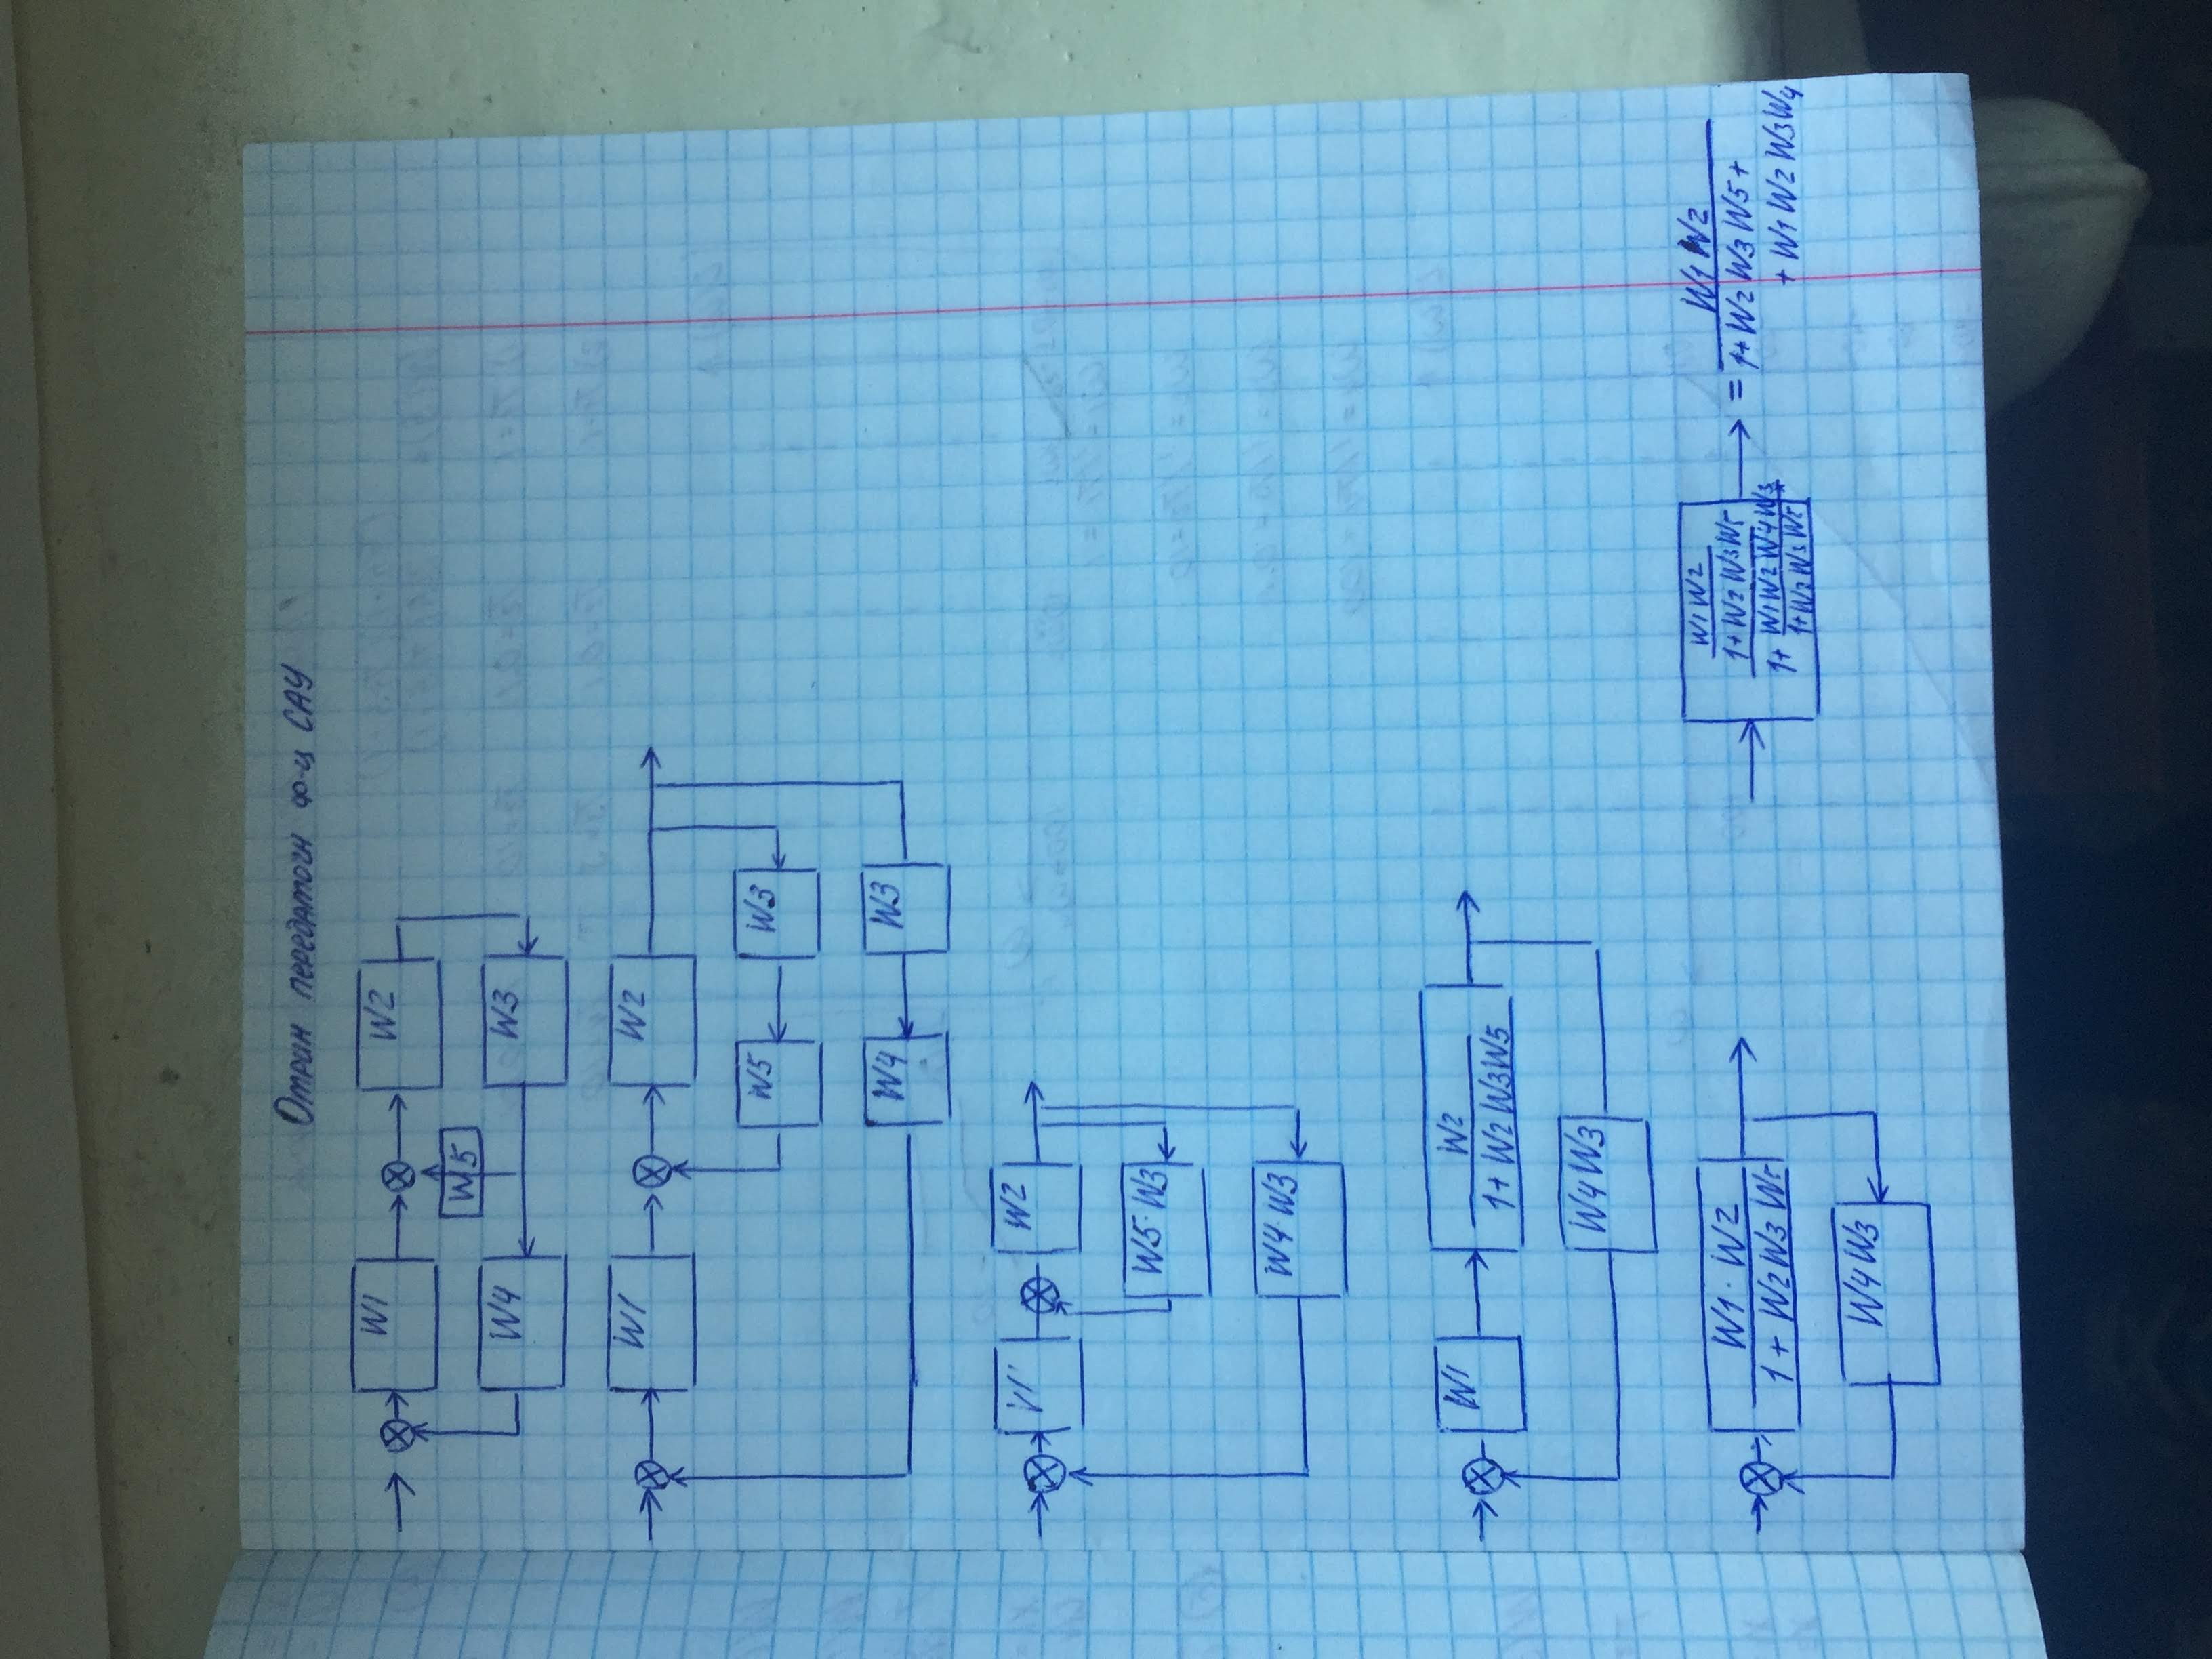 Отрим передаточн ф-ц САУ
W1 W2
W5
W4 W3
W1 W2
W5 W3
W4 W3
W1 W2
W5·W3
W4·W3
W1 W2
1+W2W3W5
W4W3
W1·W2
1+W2W3W5
W4W3
W1W2
1+W2W3W5
1+ W1W2W4W3
1+W2W3W5
= W1W2
1+W2W3W5+
+W1W2W3W4